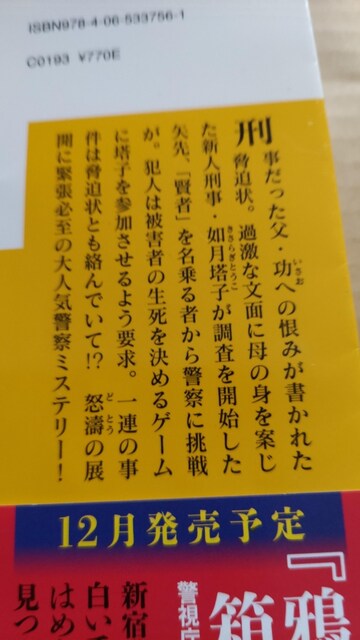 ISBN978-4-06-533756-1
C0193 ¥770E
刑事だった父・功への恨みが書かれた
いさお
脅迫状。過激な文面に母の身を案じ
た新人刑事・如月塔子が調査を開始した
きさらぎとうこ
矢先、「賢者」を名乗る者から警察に挑戦
が。犯人は被害者の生死を決めるゲーム
に塔子を参加させるよう要求。一連の事
件は脅迫状とも絡んでいて!? 怒濤の展
どとう
開に緊張必至の大人気警察ミステリー!
12月発売予定
『鴉
箱
警視庁
新宿
白い
はめ
見つ